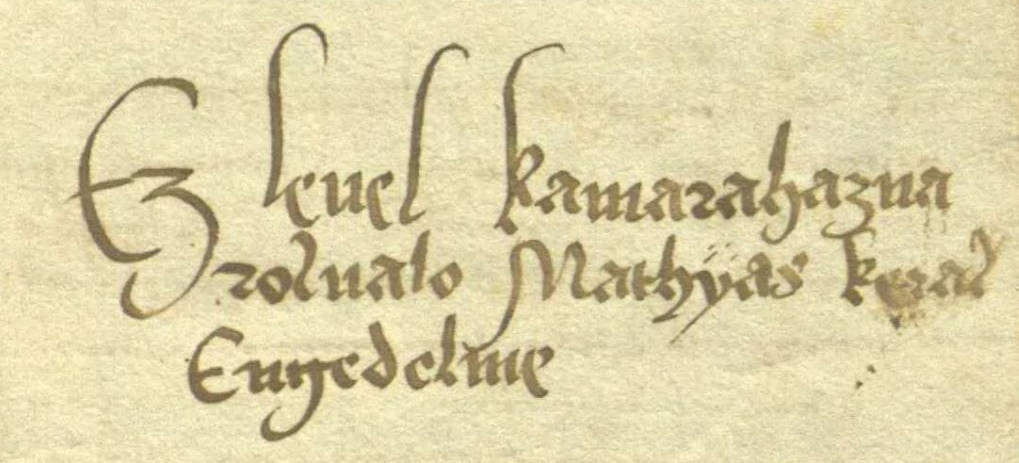 Ez leuel kamarahazna
rolualo Mathÿas kiral
Engedelme